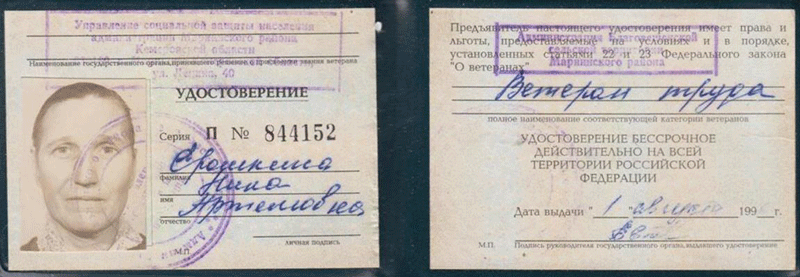 Управление социальной защиты населения
Мариинского района
Кемеровской области
ул. Ленина, 40
Наименование государственного органа, принявшего решение о присвоении звания ветерана
УДОСТОВЕРЕНИЕ
Серия П № 844152
Ерошкина
фамилия
Нина
имя
Артемовна
отчество
личная подпись
М.П.
Предъявитель настоящего удостоверения имеет права и
льготы, предоставляемые на условиях и в порядке,
установленных статьями 22 и 23 Федерального закона
"О ветеранах"
Администрация
Мариинского района
Ветеран труда
полное наименование соответствующей категории ветеранов
УДОСТОВЕРЕНИЕ БЕССРОЧНОЕ
ДЕЙСТВИТЕЛЬНО НА ВСЕЙ
ТЕРРИТОРИИ РОССИЙСКОЙ
ФЕДЕРАЦИИ
Дата выдачи "1 августа 199 г.
М.П. Подпись руководителя государственного органа, выдавшего удостоверение